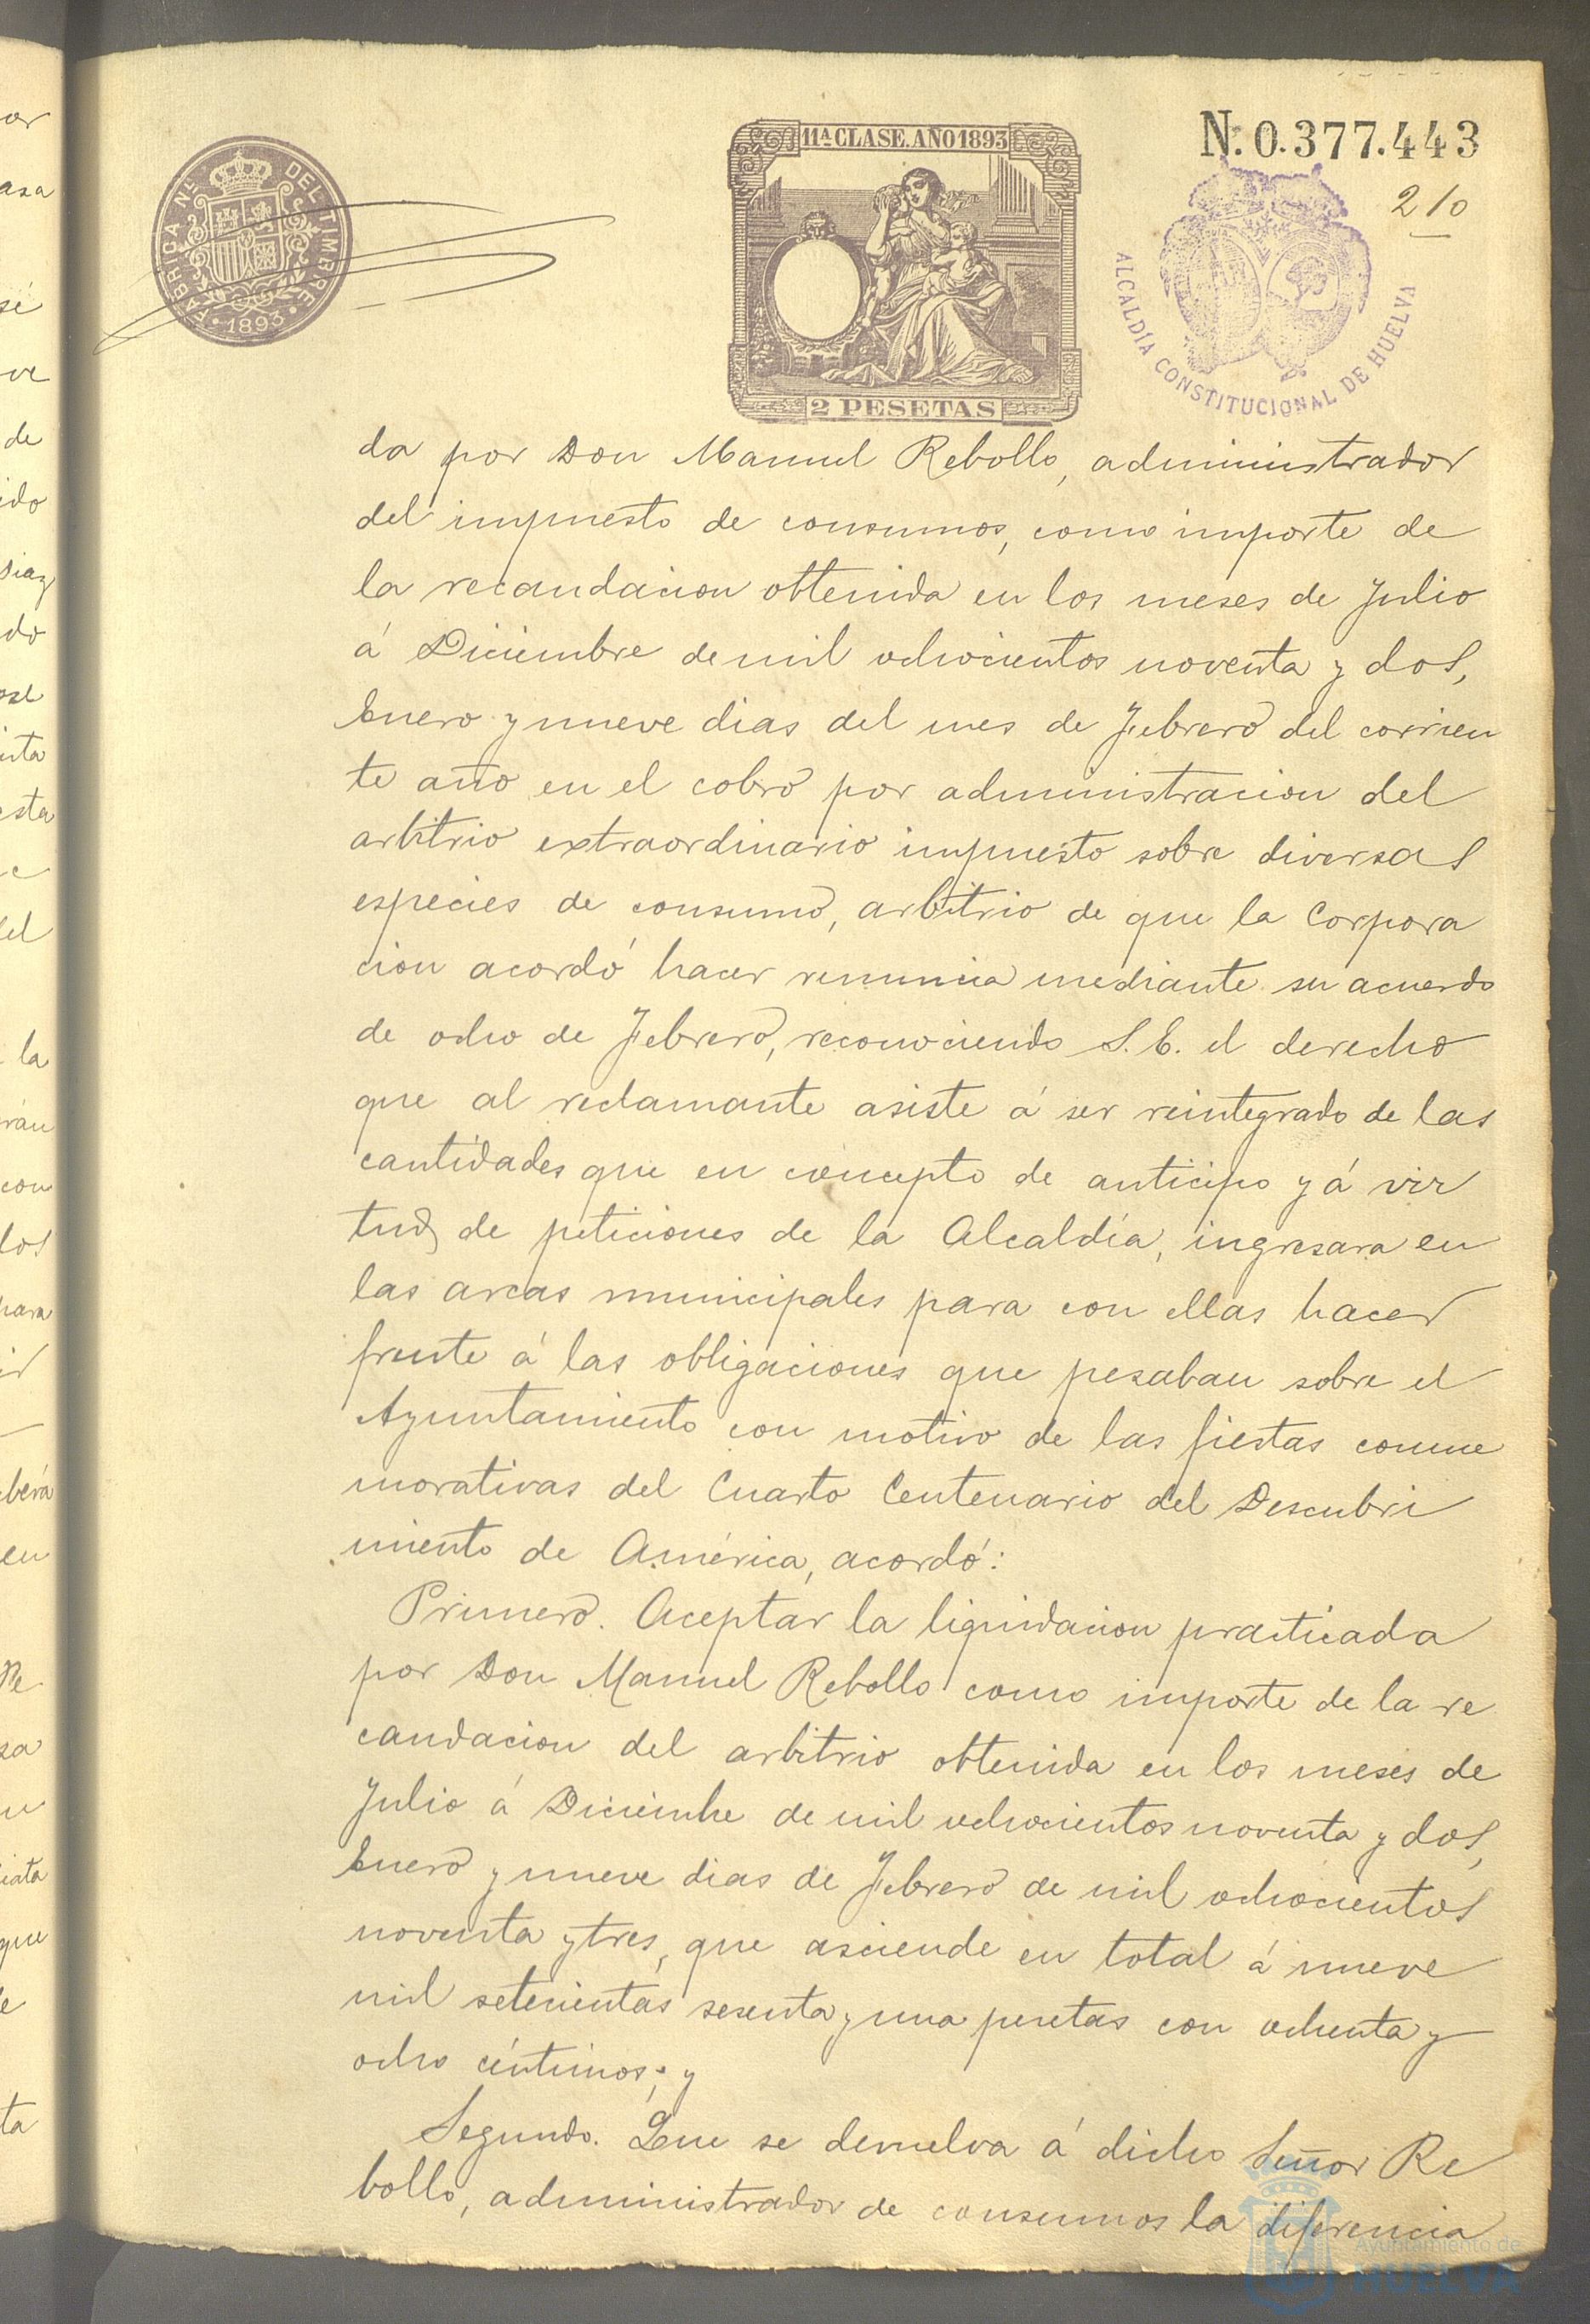 11ª CLASE. AÑO 1893
Nº. 0.377.443
FABRICA NL. DEL TIMBRE
1893
210
2 PESETAS
ALCALDÍA CONSTITUCIONAL DE HUELVA
da por Don Manuel Rebollo, administrador
del impuesto de consumos, como importe de
la recaudacion obtenida en los meses de Julio
á Diciembre de mil ochocientos noventa y dos,
Enero y nueve dias del mes de Febrero del corrien
te año en el cobro por administracion del
arbitrio extraordinario impuesto sobre diversas
especies de consumo, arbitrio de que la Corpora
cion acordó hacer renuncia mediante su acuerdo
de ocho de Febrero, reconociendo S. E. el derecho
que al reclamante asiste á ser reintegrado de las
cantidades que en concepto de anticipo y á vir
tud de peticiones de la Alcaldía, ingresara en
las arcas municipales para con ellas hacer
frente á las obligaciones que pesaban sobre el
Ayuntamiento con motivo de las fiestas conme
morativas del Cuarto Centenario del Descubri
miento de América, acordó:
Primero. Aceptar la liquidacion practicada
por Don Manuel Rebollo como importe de la re
caudacion del arbitrio obtenida en los meses de
Julio á Diciembre de mil ochocientos noventa y dos,
Enero y nueve dias de Febrero de mil ochocientos
noventa y tres, que asciende en total á nueve
mil setecientas sesenta y una pesetas con ochenta y
ocho céntimos; y
Segundo. Que se devuelva á dicho Señor Re
bollo, administrador de consumos la diferencia
Ayuntamiento de
HUELVA